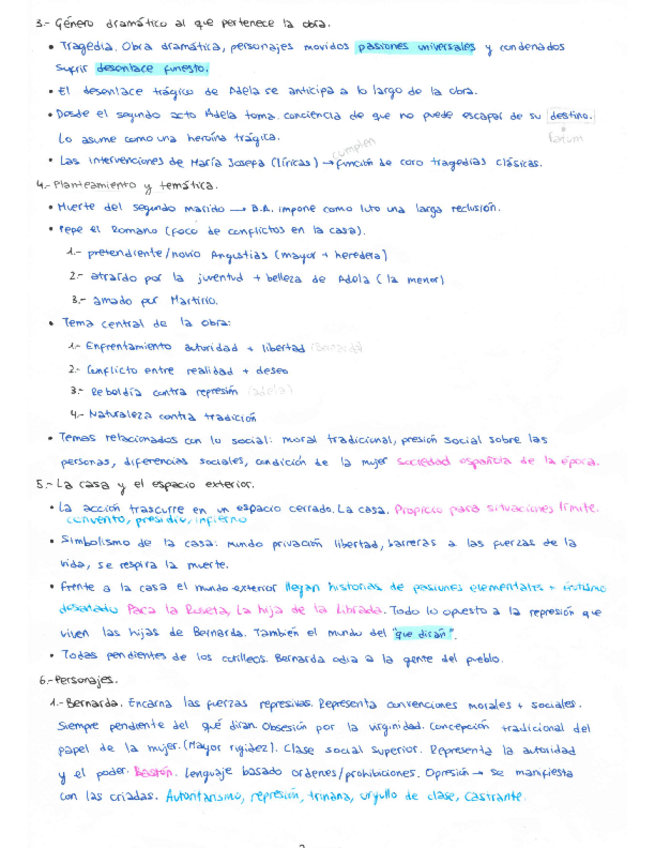 3.- Género dramático al que pertenece la obra.
• Tragedia. Obra dramática, personajes movidos pasiones universales y condenados
sufrir desenlace funesto.
• El desenlace trágico de Adela se anticipa a lo largo de la obra.
• Desde el segundo acto Adela toma conciencia de que no puede escapar de su destino.
Lo asume como una heroína trágica.
fatum
cumplen
• Las intervenciones de María Josefa (líricas) → función de coro tragedias clásicas.
4.- Planteamiento y temática.
• Muerte del segundo marido → B.A. impone como luto una larga reclusión.
• Pepe el Romano (foco de conflictos en la casa).
1.- pretendiente/novio Angustias (mayor + heredera)
2.- atraído por la juventud + belleza de Adela (la menor)
3.- amado por Martirio.
• Tema central de la obra:
1.- Enfrentamiento autoridad + libertad (Bernarda)
2.- Conflicto entre realidad + deseo
3.- Rebeldía contra represión (adela)
4.- Naturaleza contra tradición
• Temas relacionados con lo social: moral tradicional, presión social sobre las
personas, diferencias sociales, condición de la mujer sociedad española de la época.
5.- La casa y el espacio exterior.
• La acción trascurre en un espacio cerrado. La casa. Propicio para situaciones límite.
convento, presidio, infierno
• Simbolismo de la casa: mundo privación libertad, barreras a las fuerzas de la
vida, se respira la muerte.
• Frente a la casa el mundo exterior llegan historias de pasiones elementales + erotismo
desatado Para la Roseta, La hija de la Librada. Todo lo opuesto a la represión que
viven las hijas de Bernarda. También el mundo del "que dirán".
• Todas pendientes de los cotilleos. Bernarda odia a la gente del pueblo.
6.- Personajes.
1.- Bernarda. Encarna las fuerzas represivas. Representa convenciones morales + sociales.
Siempre pendiente del qué diran. Obsesión por la virginidad. Concepción tradicional del
papel de la mujer. (Mayor rigidez). Clase social superior. Representa la autoridad
y el poder. Bastón. Lenguaje basado ordenes/prohibiciones. Opresión → se manifiesta
con las criadas. Autoritarismo, represión, tirinana, orgullo de clase, castrante.